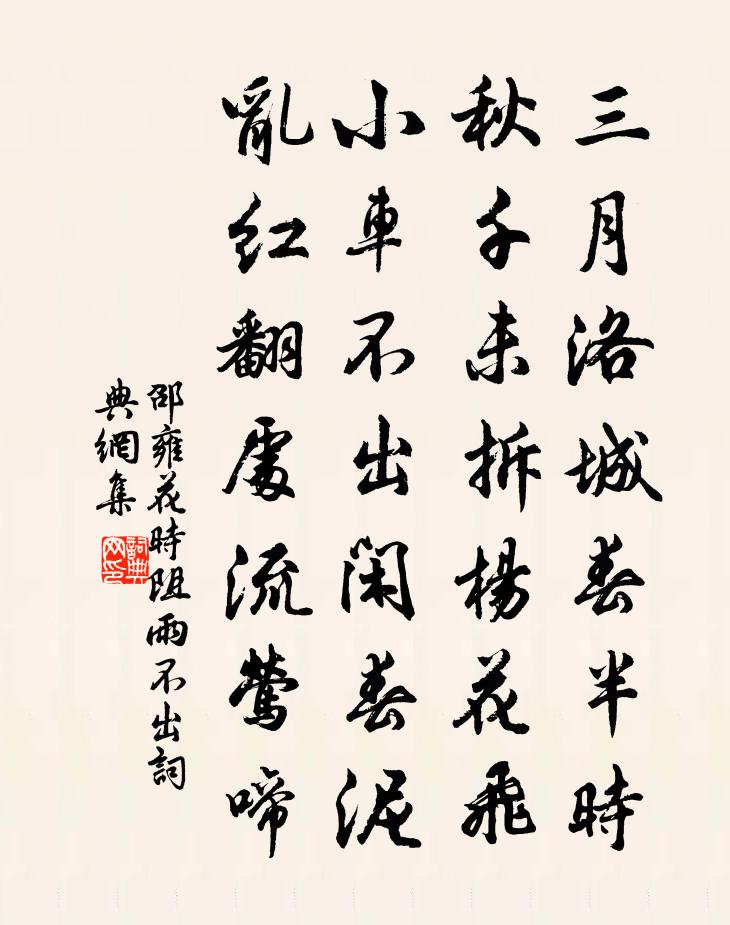 三月洛城春半時
秋千未拆楊花飛
小車不出閑春泥
亂红翻處流鶯啼
邵雍花時阻雨不出詞
典網集
詞典
网印